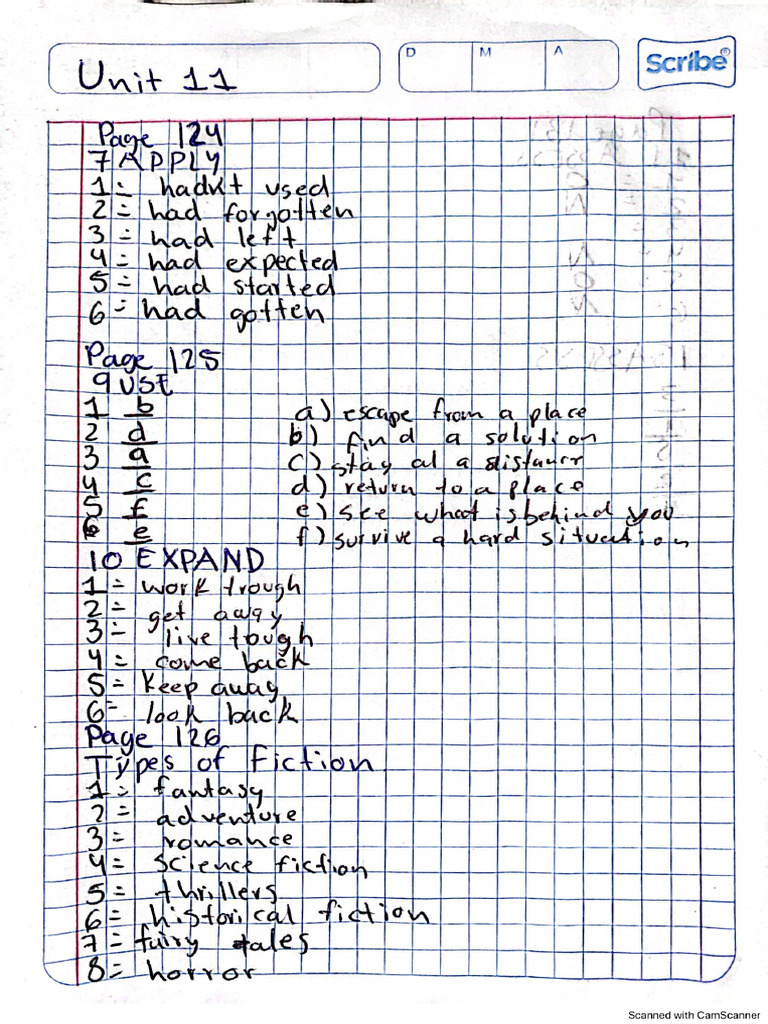 Unit 11
D M A
Scribe®
Page 124
7 APPLY
1= hadn't used
2= had forgotten
3= had left
4= had expected
5= had started
6= had gotten
Page 125
9 USE
1 b a) escape from a place
2 d b) find a solution
3 a c) stay at a distance
4 c d) return to a place
5 f e) see what is behind you
6 e f) survive a hard situation
10 EXPAND
1= work trough
2= get away
3= live tough
4= come back
5= Keep away
6= look back
Page 126
Types of Fiction
1= fantasy
2= adventure
3= romance
4= science fiction
5= thrillers
6= historical fiction
7= fairy tales
8= horror
Scanned with CamScanner